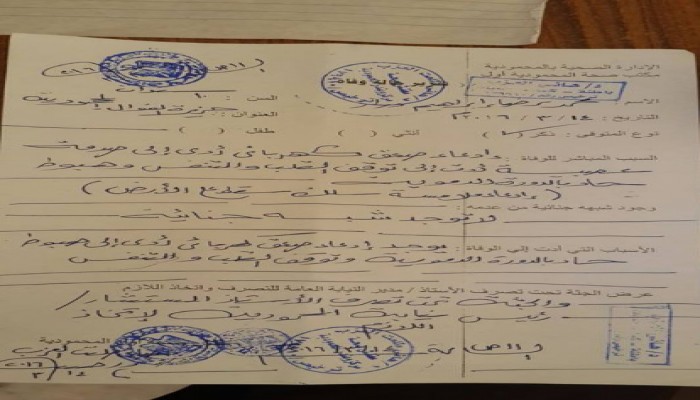 الإدارة الصحية بالمحمودية
مكتب صحة المحمودية أول
الاسم : محمد رمضان ابراهيم
السن : ١٠
التاريخ : ٢٠١٦/٣/١٤
العنوان : جزيرة
نوع المتوفى : ذكر ( ) أنثى ( ) طفل ( )
السبب المباشر للوفاة : إدعاء صعق كهربائي أدى إلى صدمة
عصبية أدت إلى توقف القلب والتنفس وهبوط
حاد بالدورة الدموية
( إدعاء ملامسة سلك الأرض )
وجود شبهه جنائية من عدمه :
لا توجد شبهه جنائية
الأسباب التي أدت إلى الوفاة : يوجد إدعاء صعق كهربائي أدى إلى هبوط
حاد بالدورة الدموية وتوقف القلب والتنفس
عرض الجثة تحت تصرف الأستاذ / مدير النيابة العامة للتصرف واتخاذ اللازم
والجثة تحت تصرف الأستاذ المستشار /
رئيس نيابة المحمودية لإتخاذ
اللازم
المحمودية
٢٠١٦
٣/١٤